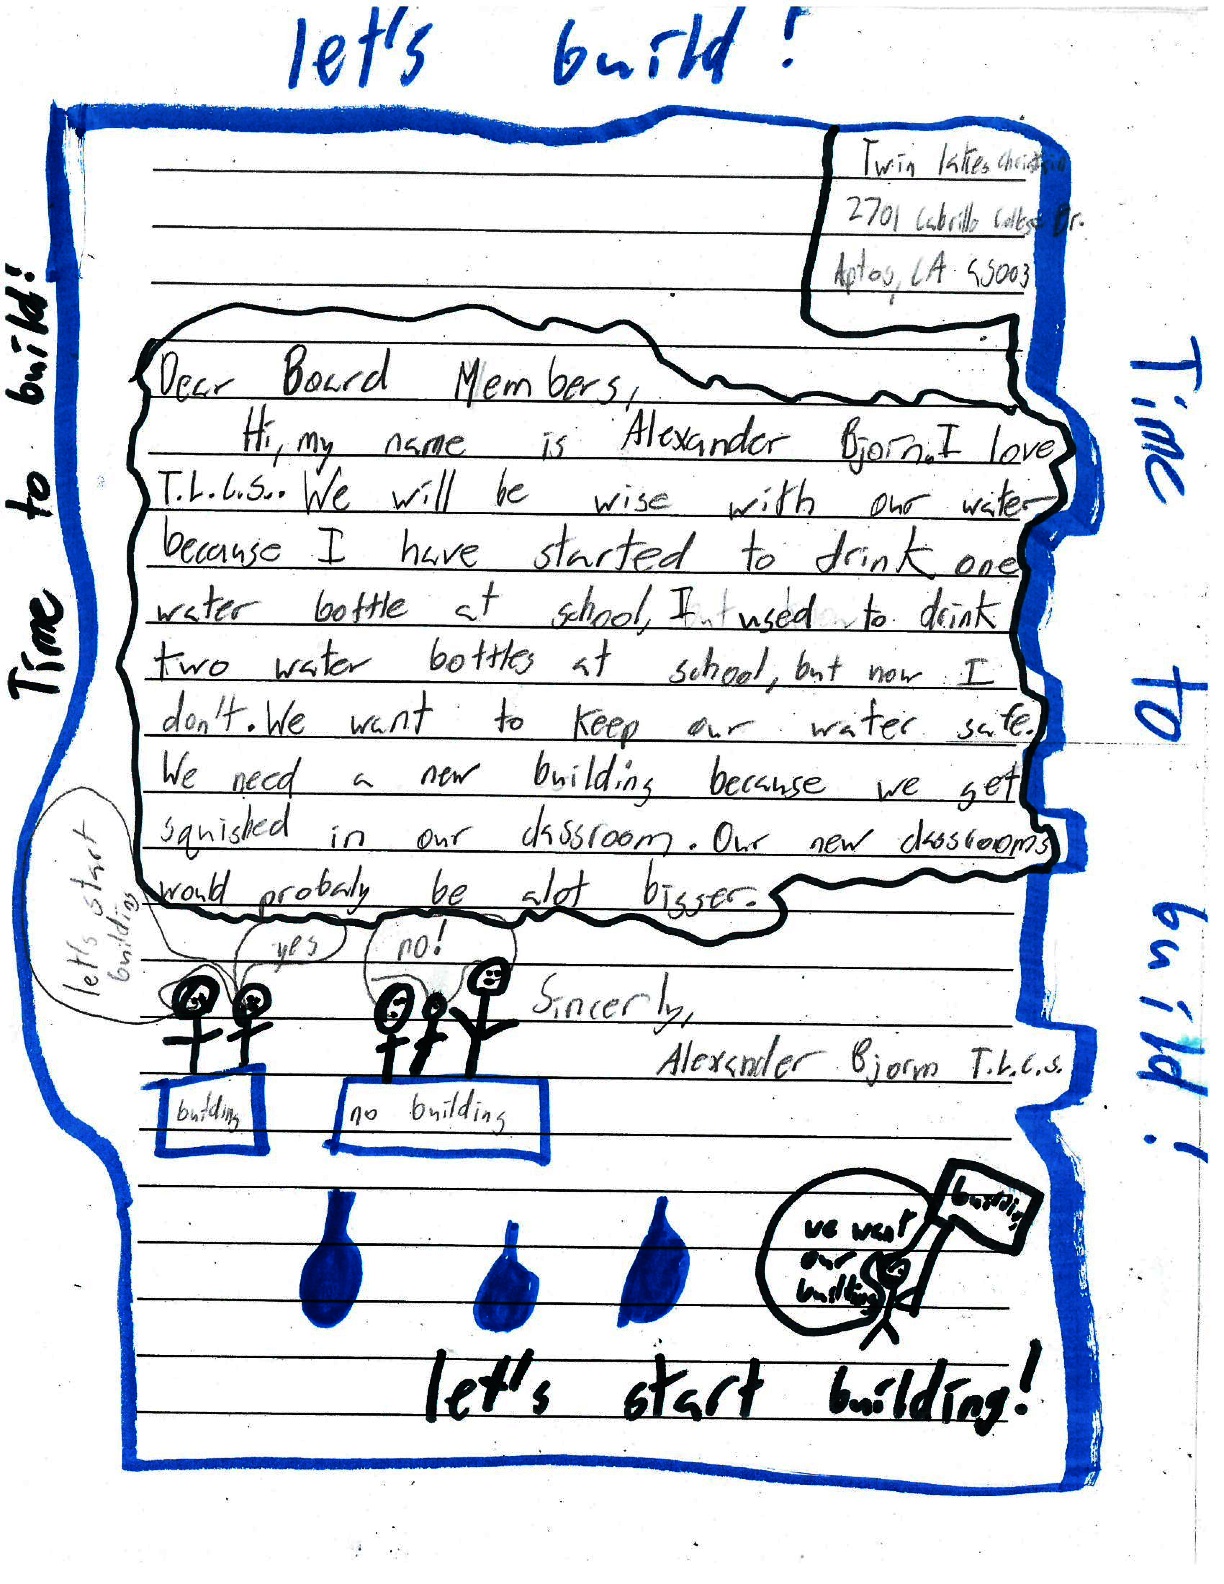 let's build!
Twin lakes christian
2701 Cabrillo College Dr.
Aptos, CA 95003
Time to build!
Time to build!
Dear Board Members,
Hi, my name is Alexander Bjorn. I love
T.L.C.S.. We will be wise with our water
because I have started to drink one
water bottle at school, I used to drink
two water bottles at school, but now I
don't. We want to keep our water safe.
We need a new building because we get
squished in our classroom. Our new classrooms
would probaly be alot bigger.
let's start
building
yes
no!
Sincerly,
Alexander Bjorn T.L.C.S.
building
no building
building
we want
our
building
let's start building!